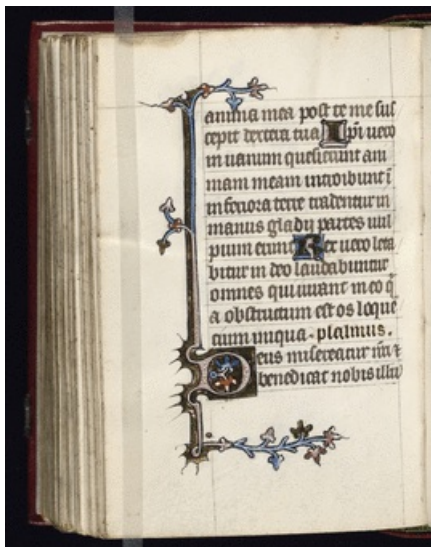 anima mea post te me sus
cepit dextera tua Ipi uero
in uanum quesierunt ani
mam meam introibunt ī
inferiora terre tradentur in
manus gladij partes uul
pium erunt Rex uero leta
bitur in deo laudabuntur
omnes qui iurant in eo q̄
a obstructum est os loque
cium iniqua. psalmus.
Deus misereatur nr̄i ⁊
benedicat nobis illu